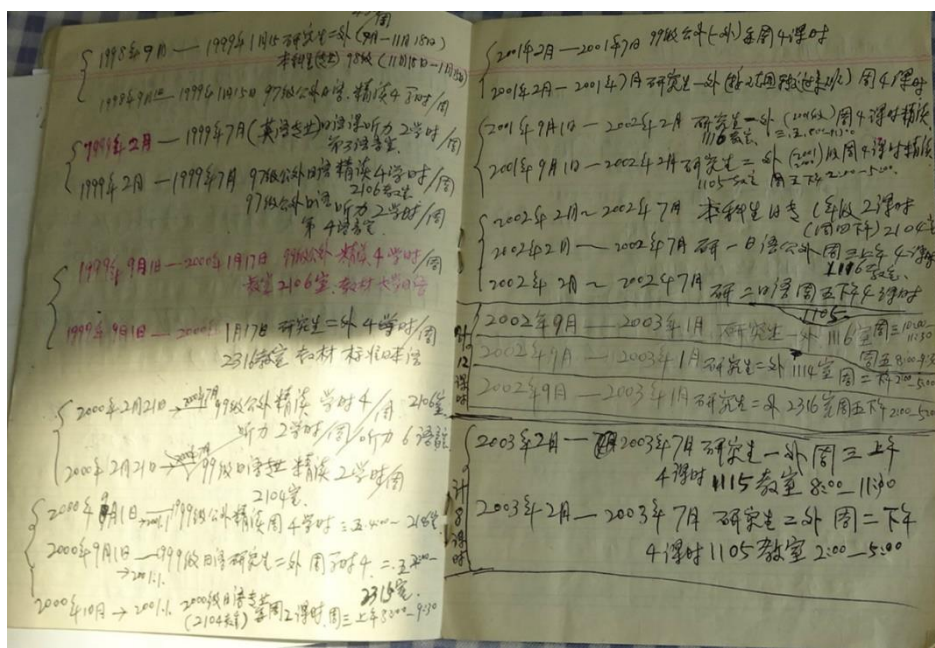 1998年9月—1999年1月15 研究生二外(9月—11月18日)
本科生 98级(11月18日—1月
1999年1月15日 97级公外日语.精读4学时/周
1999年2月—1999年7月(英语专业)日语课听力2学时/周
第3语音室.
1999年2月—1999年7月 97级公外日语精读4学时/周
2106教室
97级公外日语听力2学时/周
第4语音室.
1999年9月1日—2000年1月17日 99级公外 精读4学时/周
教室2106室.教材大学日语
1999年9月1日—2000年1月17日 研究生二外4学时/周
2316教室 教材 标准日本语
2000年2月21日→ 99级公外精读 学时4/周 2106室
听力2学时/周/听力6语音室
2000年2月21日→ 99级日语专业精读2学时/周
2104室.
2000年9月1日 1999级公外精读周4学时
2000年9月1日—1999级日语研究生二外 周 时4.
→2001.1. 2316室.
2000年10月→2001.1. 2000级日语专业
(2104教室) 周2课时.周三上午8:00—9:30
2001年2月—2001年7月 99级公外(一外)每周4课时
2001年2月—2001年7月 研究生一外 周4课时
2001年9月1日—2002年2月 研究生一外(2001级)周4课时精读
1116教室
2001年9月1日—2002年2月 研究生二外(2001)级周4课时精读
1105教室 周五下午2:00—5:00.
2002年2月~2002年7月 本科生日专1年级2课时
(周四下午)2104室
2002年2月—2002年7月 研一日语公外周三上午4课时
1116教室.
2002年2月~2002年7月 研二日语周五下午4课时
1105
计12课时
2002年9月—2003年1月 研究生一外 1116室 周三10:00—11:30
周五8:00—
2002年9月—2003年1月 研究生二外 1114室 周二下午2:00—5:00
2002年9月—2003年1月 研究生二外 2316室周五下午2:00—5:00
计8课时
2003年2月—2003年7月 研究生一外 周三上午
4课时 1115教室 8:00—11:30
2003年2月—2003年7月 研究生二外 周二下午
4课时 1105教室 2:00—5:00